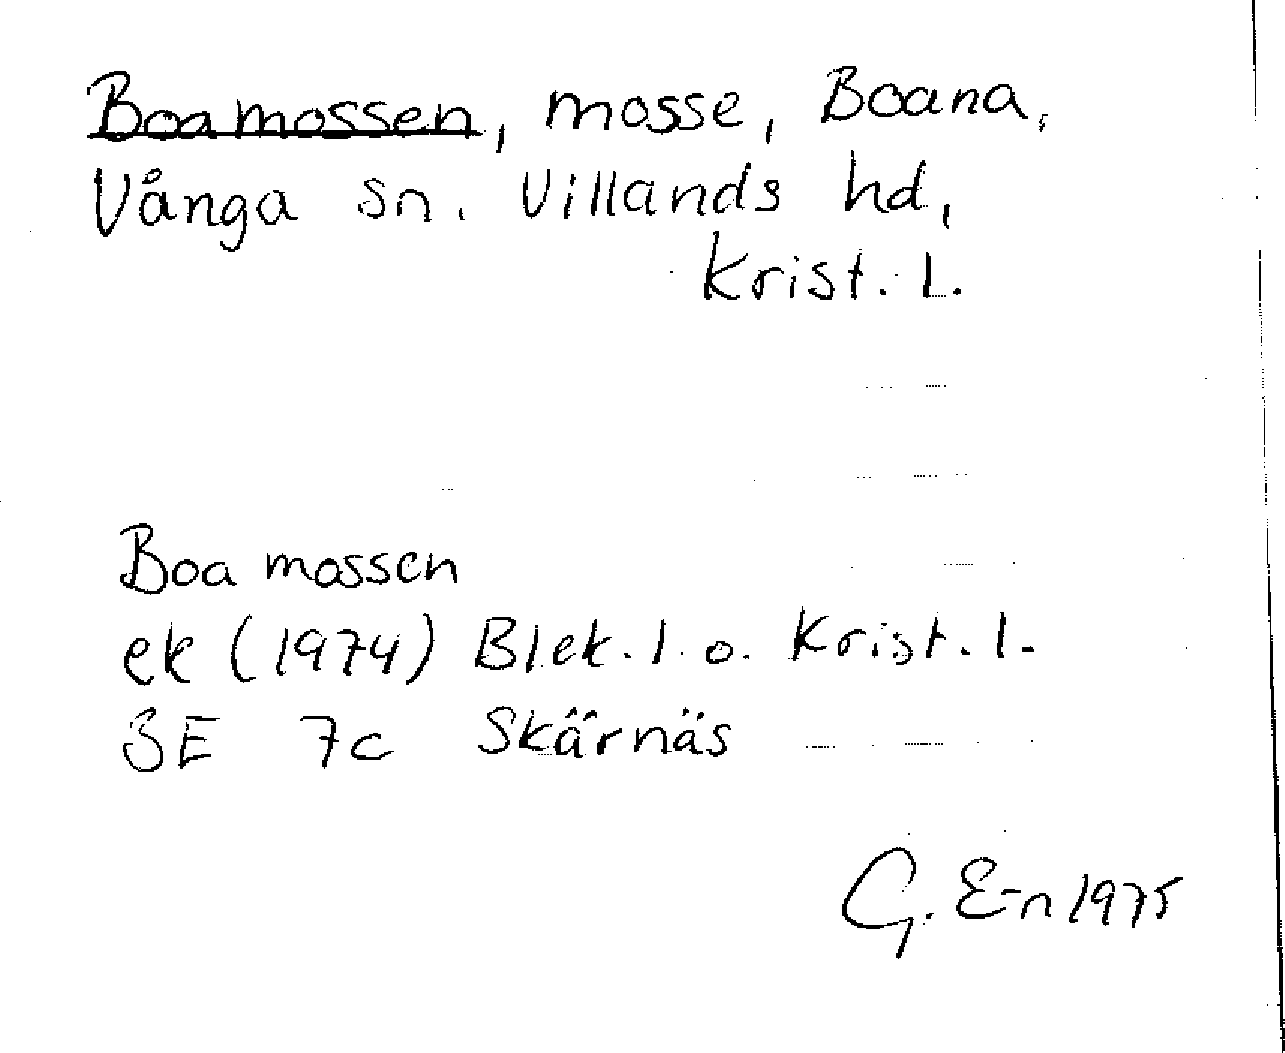 Boamossen, mosse, Boana,
Vånga sn. Villands hd,
Krist. l.
Boa mossen
ek (1974) Blek. l. o. Krist. l.
3E 7c Skärnäs
G. E-n 1975